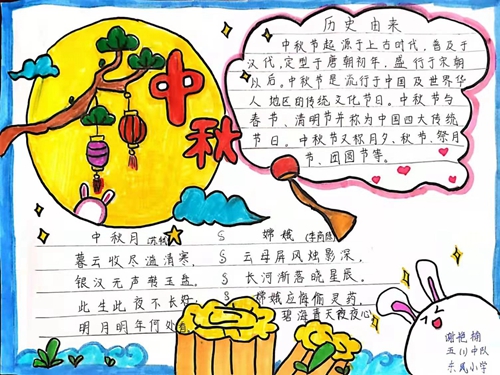 中秋
历史 由来
中秋节起源于上古时代，普及于
汉代，定型于唐朝初年，盛行于宋朝
以后。中秋节是流行于中国及世界华
人地区的传统文化节日。中秋节与
春节、清明节并称为中国四大传统
节日。中秋节又称月夕、秋节、祭月
节、团圆节等。
中秋月（苏轼）
暮云收尽溢清寒，
银汉无声转玉盘。
此生此夜不长好，
明月明年何处
嫦娥（李商隐）
云母屏风烛影深，
长河渐落晓星辰。
嫦娥应悔偷灵药，
碧海青天夜夜心
五(1)中队
东风小学